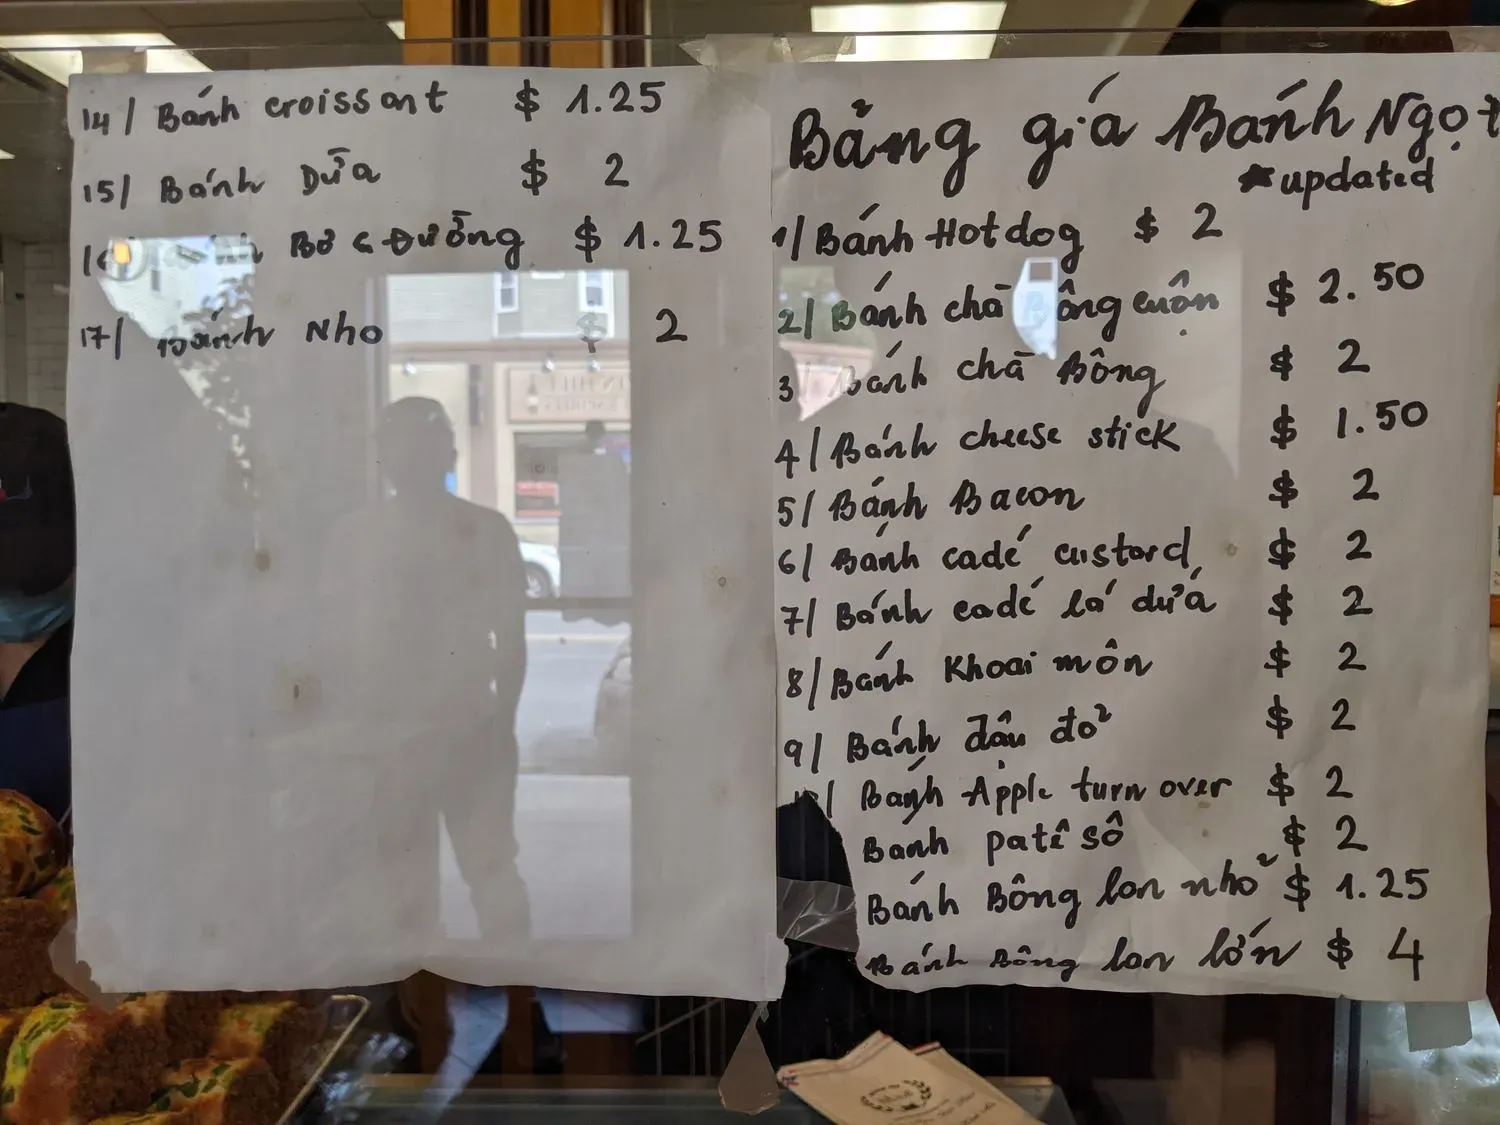 Bảng giá Bánh Ngọt
* updated
1/ Bánh Hotdog $ 2
2/ Bánh chà Bông cuộn $ 2.50
3/ Bánh chà Bông $ 2
4/ Bánh cheese stick $ 1.50
5/ Bánh Bacon $ 2
6/ Bánh cadé custard $ 2
7/ Bánh cadé lá dứa $ 2
8/ Bánh Khoai môn $ 2
9/ Bánh đậu đỏ $ 2
10/ Bánh Apple turn over $ 2
Bánh patê sô $ 2
Bánh Bông lan nhỏ $ 1.25
Bánh Bông lan lớn $ 4
14/ Bánh croissant $ 1.25
15/ Bánh Dừa $ 2
16/ Bánh Bơ & Đường $ 1.25
17/ Bánh Nho $ 2